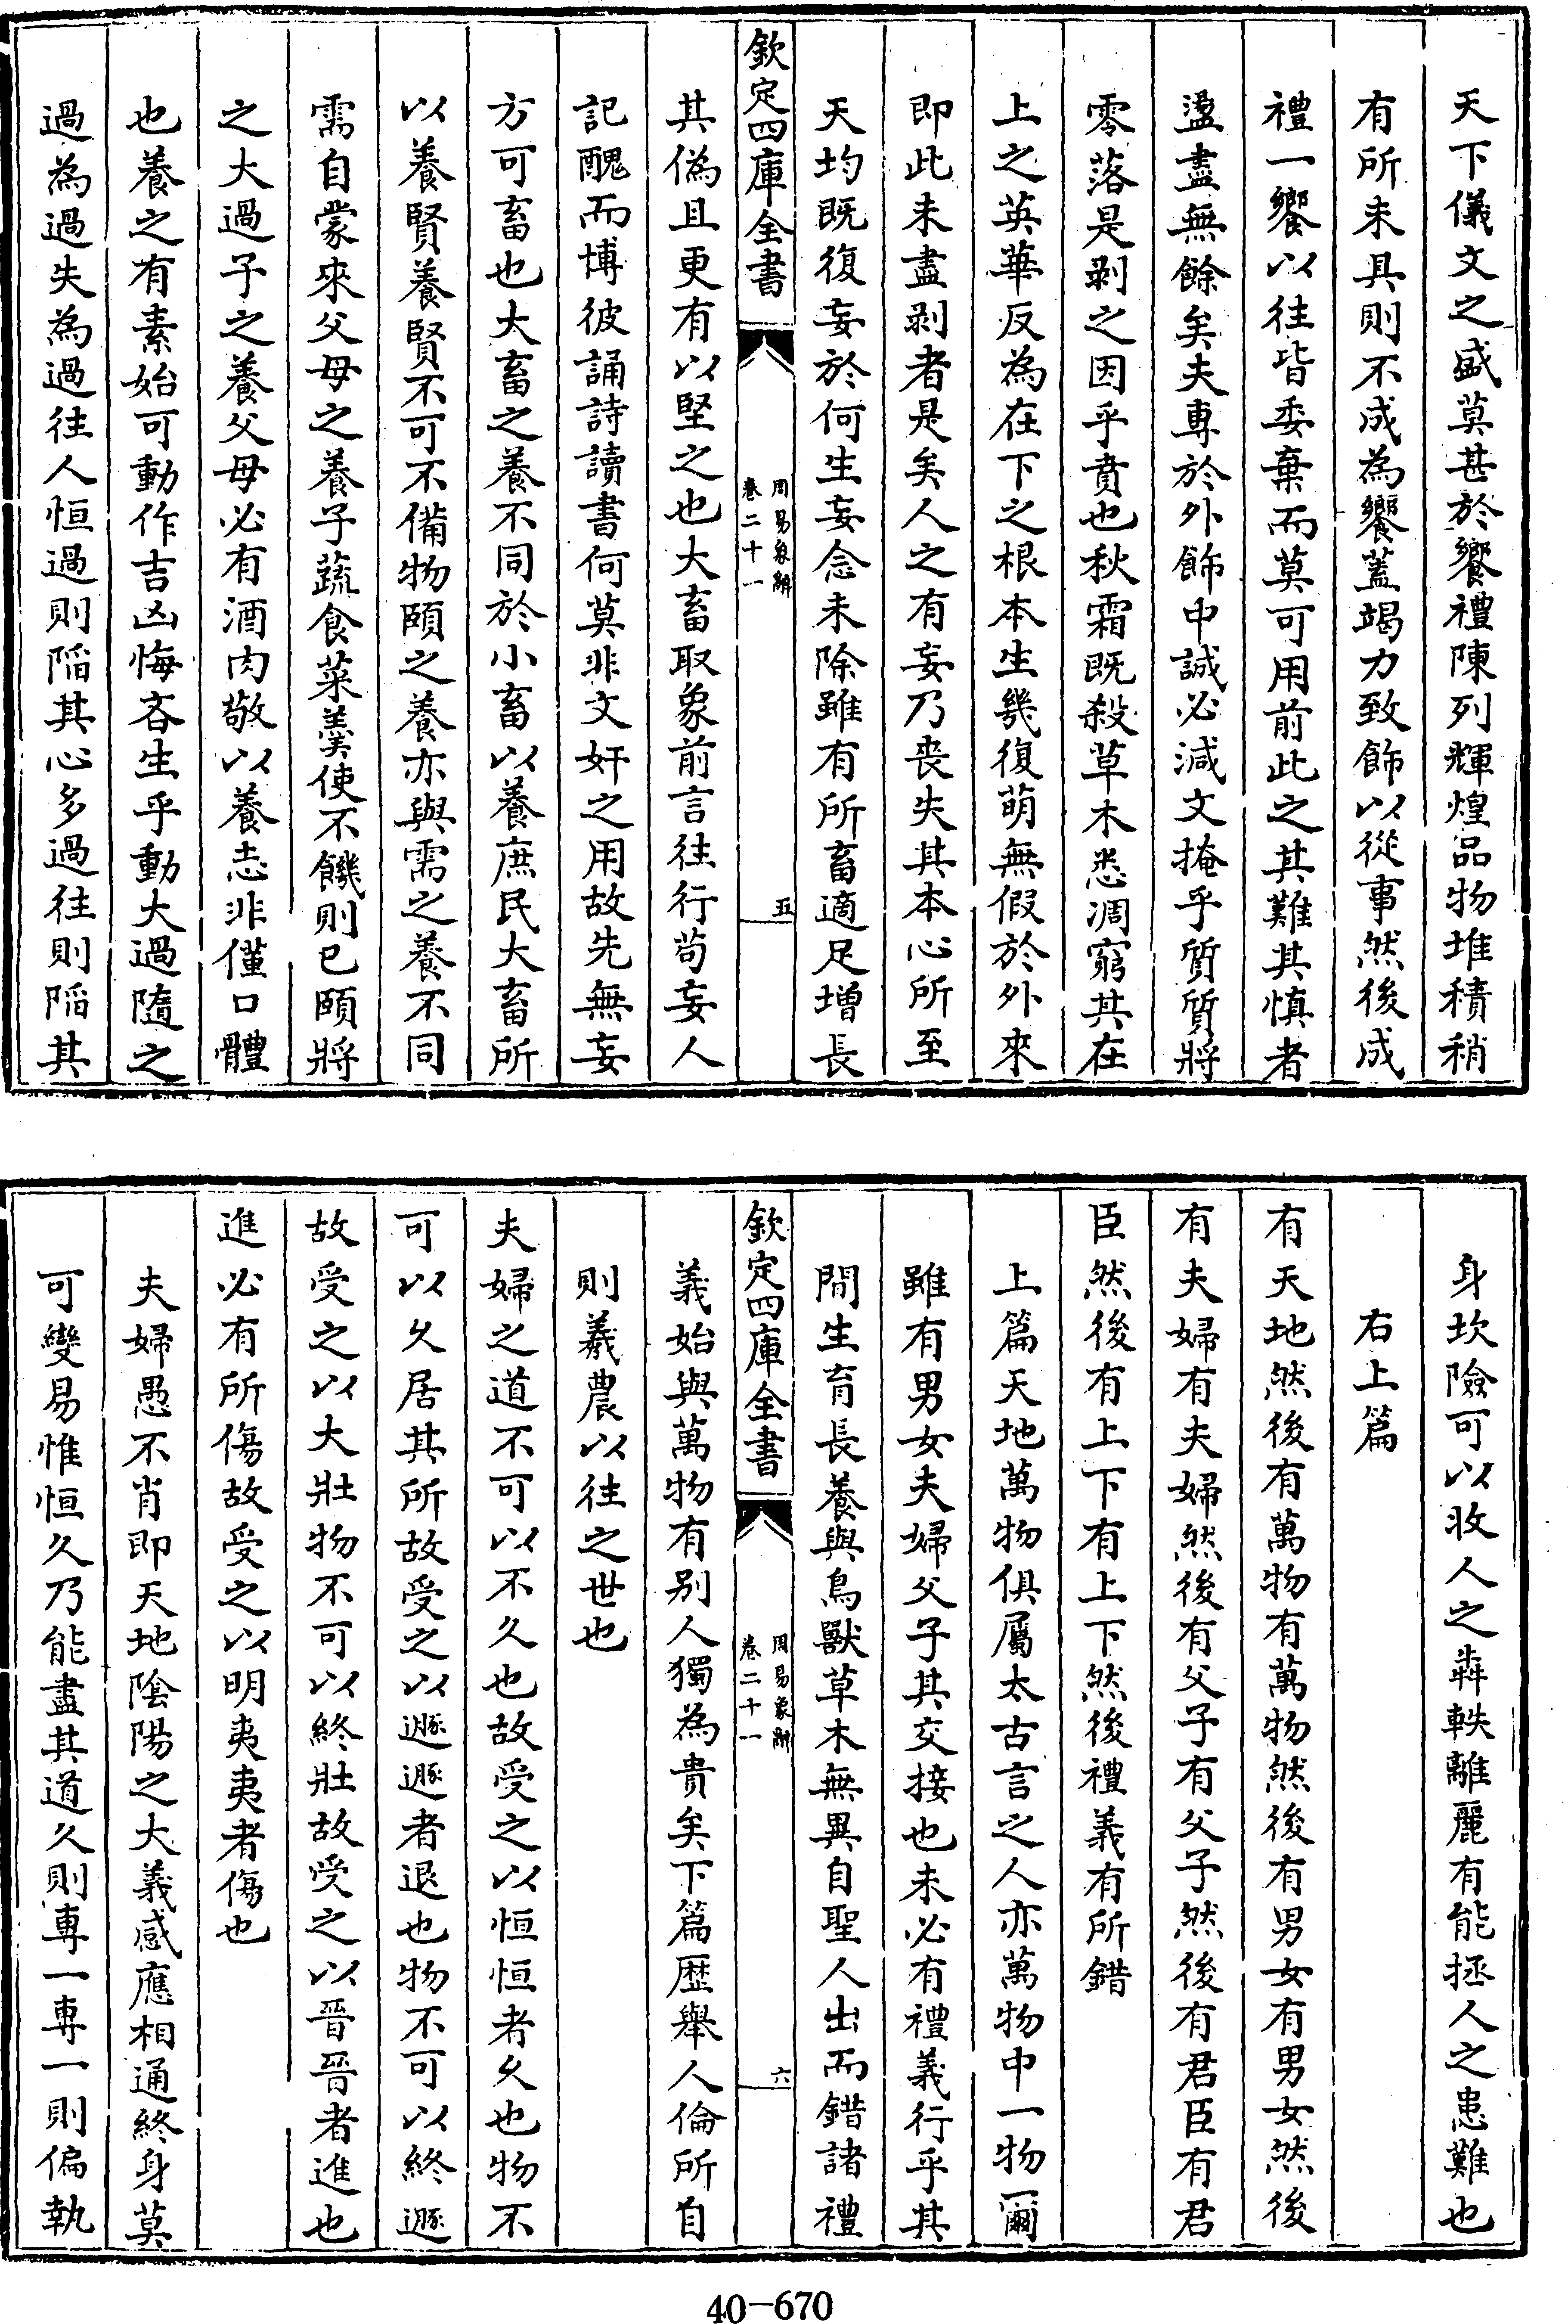 天下儀文之盛莫甚於饗禮陳列輝煌品物堆積稍
有所未具則不成為饗蓋竭力致飾以從事然後成
禮一饗以往皆委棄而莫可用前此之其難其慎者
盪盡無餘矣夫專於外飾中誠必減文掩乎質質將
零落是剥之因乎賁也秋霜既殺草木悉凋窮其在
上之英華反為在下之根本生幾復萌無假於外來
即此未盡剥者是矣人之有妄乃喪失其本心所至
天均既復妄於何生妄念未除雖有所畜適足增長
欽定四庫全書
周易象辭
卷二十一
五
其偽且更有以堅之也大畜取象前言往行苟妄人
記醜而博彼誦詩讀書何莫非文奸之用故先無妄
方可畜也大畜之養不同於小畜以養庶民大畜所
以養賢養賢不可不備物頤之養亦與需之養不同
需自蒙來父母之養子蔬食菜羮使不饑則已頤將
之大過子之養父母必有酒肉敬以養志非僅口體
也養之有素始可動作吉凶悔吝生乎動大過隨之
過為過失為過往人恒過則陷其心多過往則陷其
身坎險可以收人之犇軼離麗有能拯人之患難也
右上篇
有天地然後有萬物有萬物然後有男女有男女然後
有夫婦有夫婦然後有父子有父子然後有君臣有君
臣然後有上下有上下然後禮義有所錯
上篇天地萬物俱屬太古言之人亦萬物中一物爾
雖有男女夫婦父子其交接也未必有禮義行乎其
間生育長養與鳥獸草木無異自聖人出而錯諸禮
欽定四庫全書
周易象辭
卷二十一
六
義始與萬物有别人獨為貴矣下篇歴舉人倫所自
則羲農以往之世也
夫婦之道不可以不久也故受之以恒恒者久也物不
可以久居其所故受之以遯遯者退也物不可以終遯
故受之以大壯物不可以終壯故受之以晉晉者進也
進必有所傷故受之以明夷夷者傷也
夫婦愚不肖即天地陰陽之大義感應相通終身莫
可變易惟恒久乃能盡其道久則專一專一則偏執
40-670